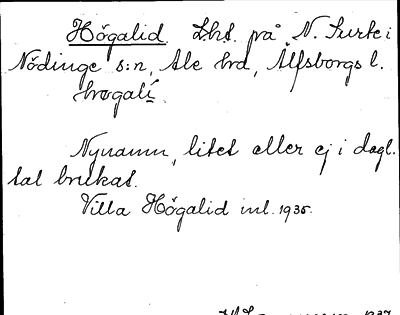 Högalid. Lht. på N. Surte i
Nödinge s:n, Ale hd, Älfsborgs l.
høgalí.
Nynamn, litet eller ej i dagl.
tal brukat.
Villa Högalid inl. 1935.